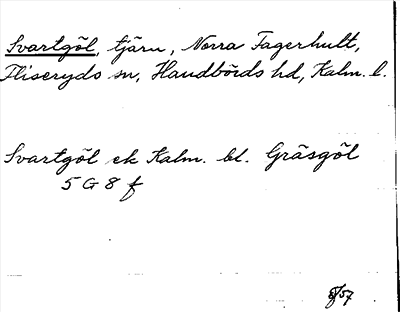 Svartgöl, tjärn, Norra Fagerhult,
Fliseryds sn, Handbörds hd, Kalm. l.
Svartgöl ek Kalm. bl. Gräsgöl
5 G 8 f
/57